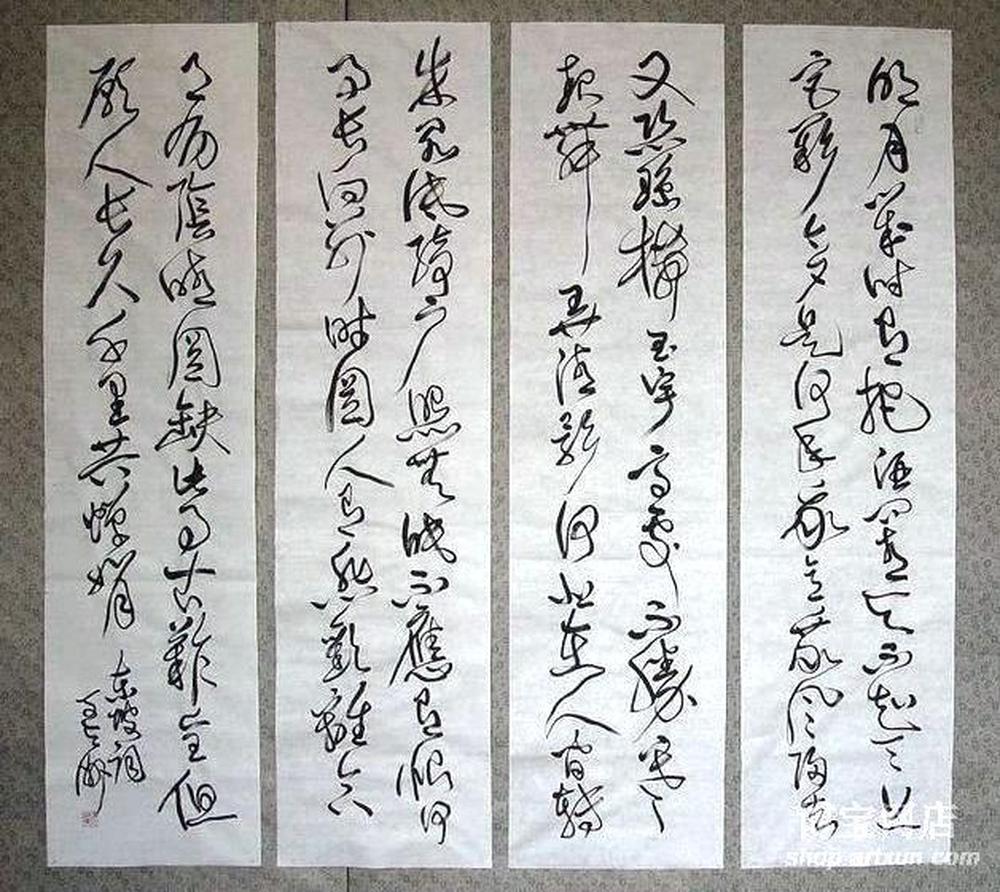 明月幾时有把酒问青天不知天上
宫阙今夕是何年我欲乘风归去
又恐琼楼玉宇高处不勝寒
起舞弄清影何似在人间转
朱阁低绮户照無眠不應有恨何
事長向别时圆人有悲歡離合
月有陰晴圆缺此事古難全但
願人長久千里共婵娟
东坡词
shop.artxun.com